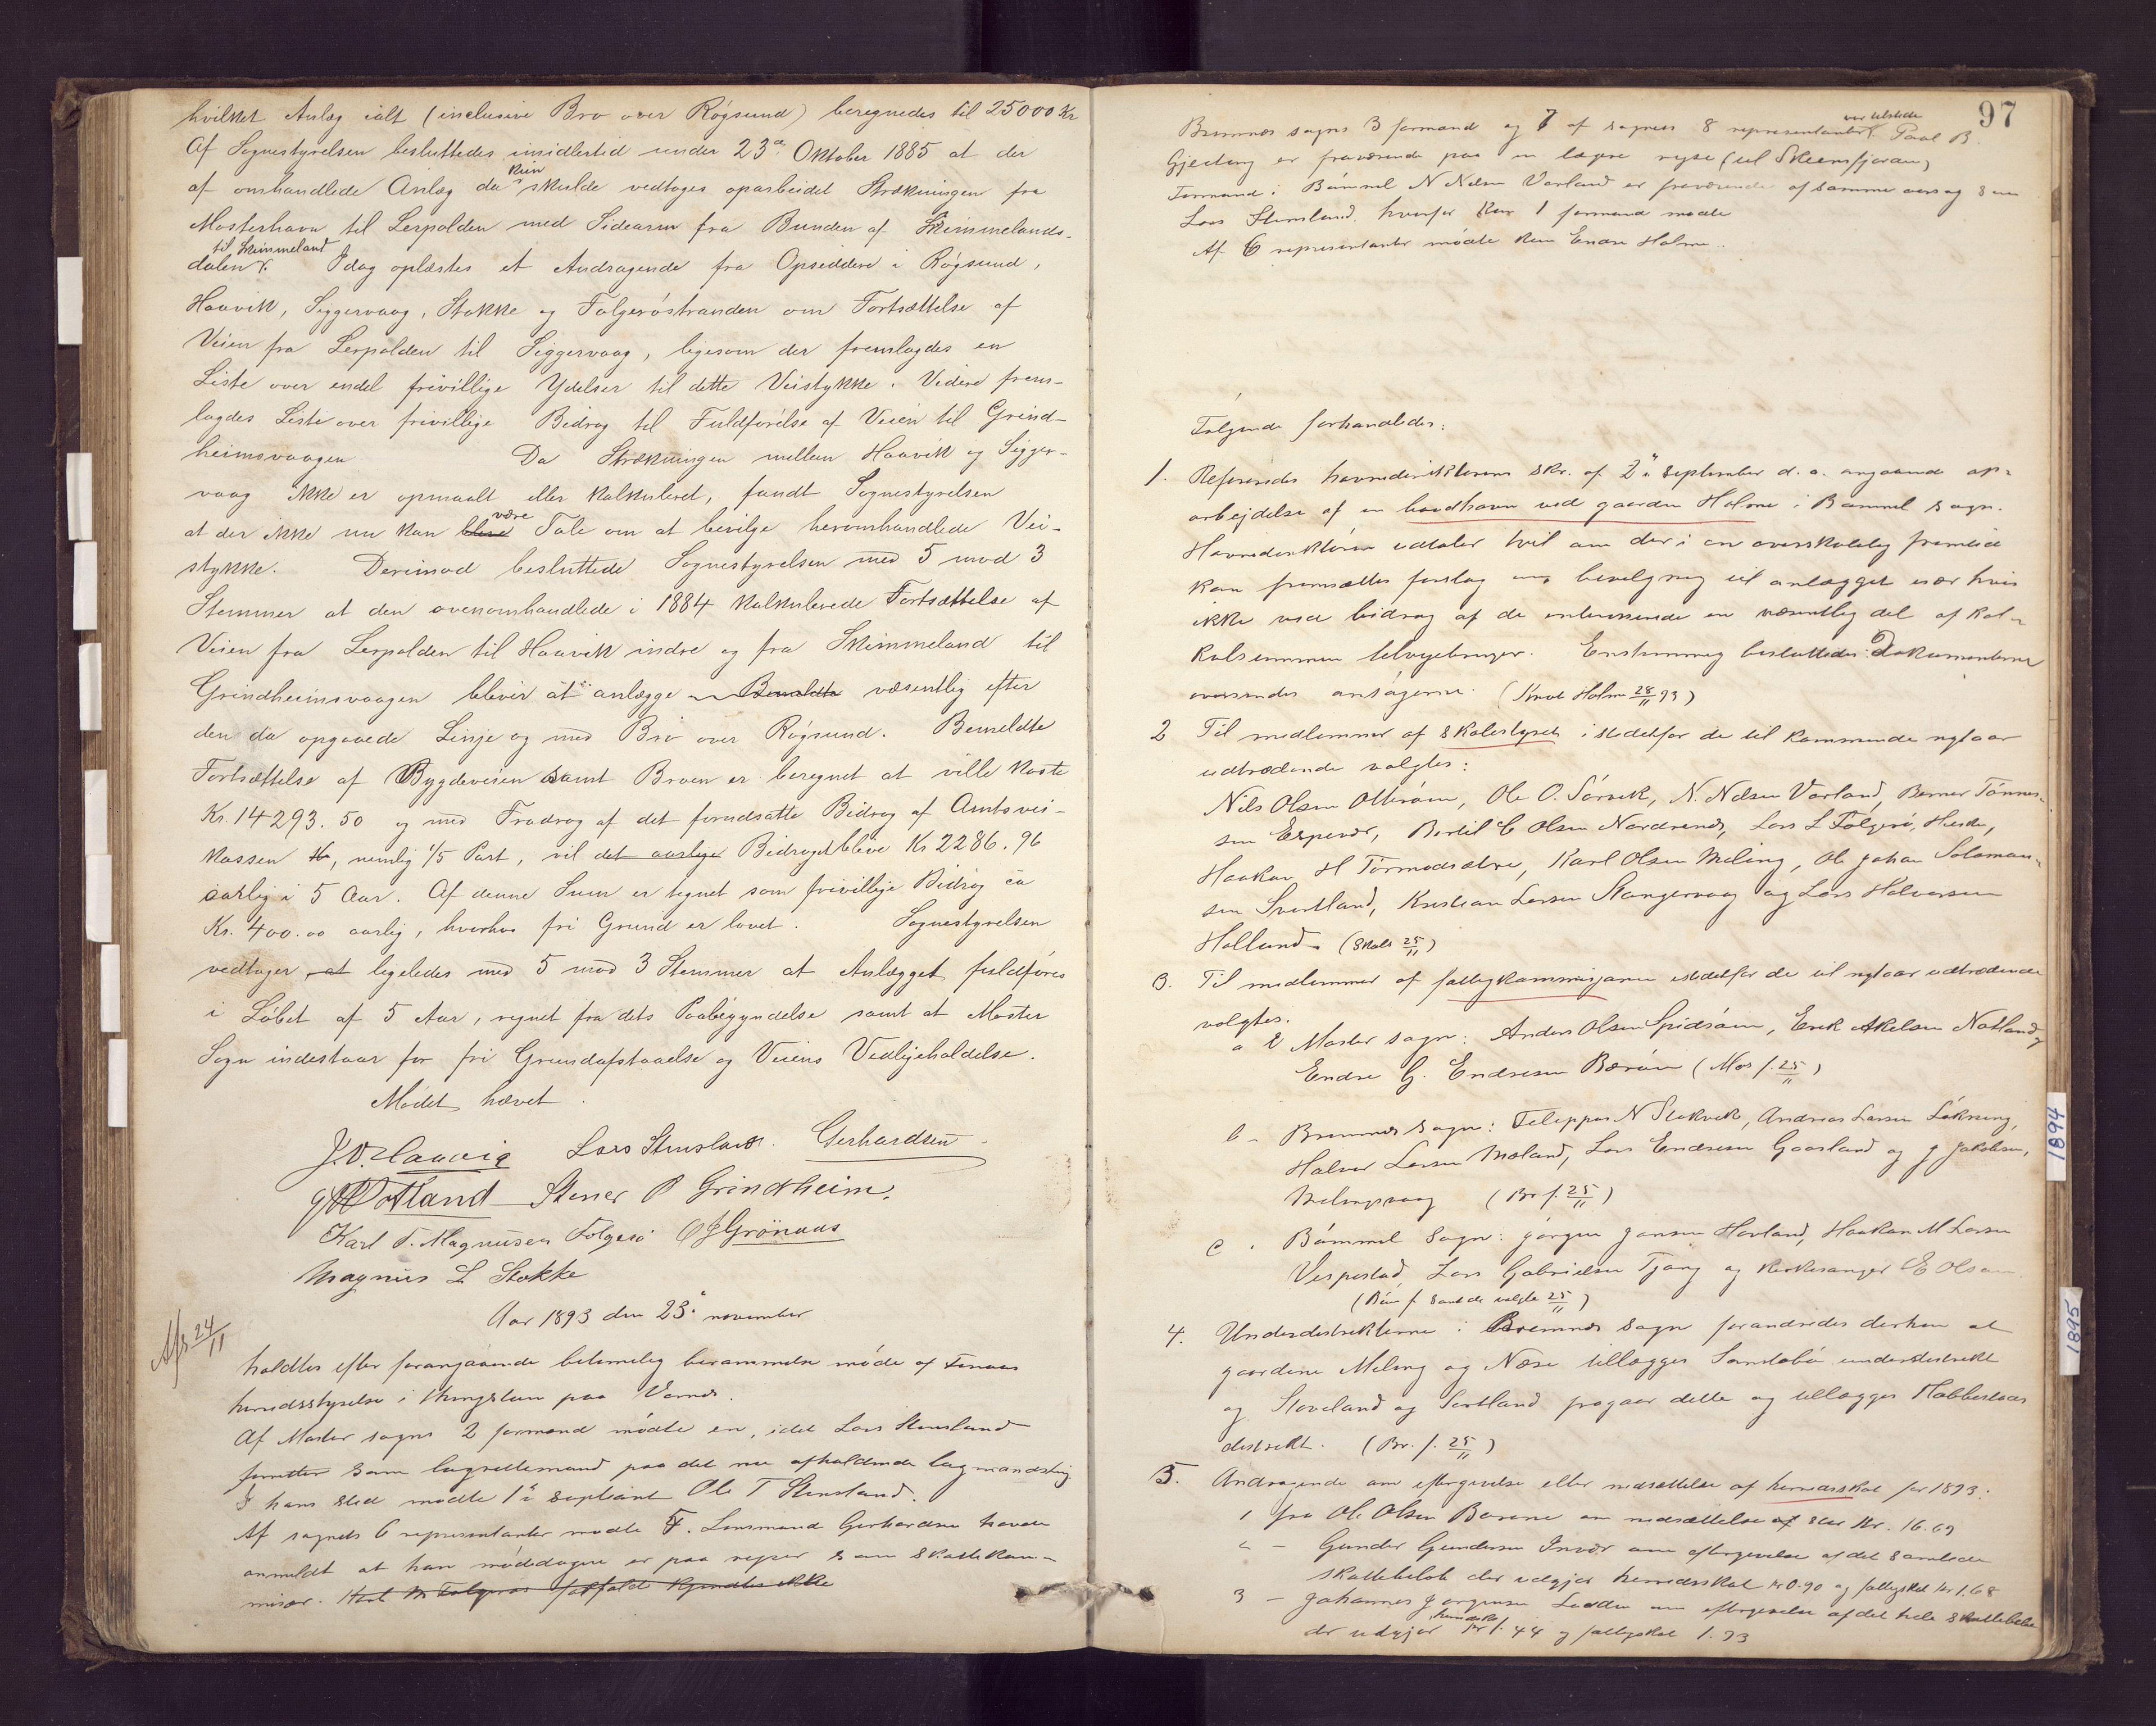 hvilket Anlæg ialt (inclusive Bro over Røgsund) beregnedes til 25000 Kr
Af Sognestyrelsen besluttedes imidlertid under 23de Oktober 1885 at der
af omhandlede Anlæg da kun skulde vedtages oparbeidet Strækningen fra
Mosterhavn til Leirpolden med Sidearm fra Bunden af Skimmelands-
dalen til Skimmeland. Idag oplæstes et Andragende fra Opsiddere i Røgsund,
Haavik, Siggervaag, Stokke og Folgerøstranden om Fortsættelse af
Veien fra Lerpolden til Siggervaag, ligesom der fremlagdes en
Liste over endel frivillige Ydelser til dette Veistykke. Videre frem-
lagdes Liste over frivillige Bidrag til Fuldførelse af Veien til Grind-
heimsvaagen Da Strækningen mellem Haavik og Sigger-
vaag ikke er opmaalt eller kalkuleret, fandt Sognestyrelsen
at der ikke nu kan blive være Tale om at bevilge heromhandlede Vei-
stykke. Derimod besluttede Sognestyrelsen med 5 mod 3
Stemmer at den ovenomhandlede i 1884 kalkulerede Fortsættelse af
Veien fra Lerpolden til Haavik indre og fra Skimmeland til
Grindheimsvaagen bliver at anlægge Bemeldte væsentlig efter
den da opgaaede Linje og med Bro over Røgsund. Bemeldte
Fortsættelse af Bygdeveien samt Broen er beregnet at ville koste
Kr. 14293.50 og med Fradrag af det forudsatte Bidrag af Amtsvei-
kassen Kr, nemlig 1/5 Part, vil det aarlige Bidraget blive Kr 2286.96
aarlig i 5 Aar. Af denne Sum er tegnet som frivillige Bidrag ca
Kr. 400.00 aarlig, hvorhos fri Grund er lovet. Sognestyrelsen
vedtager at ligeledes med 5 mod 3 Stemmer at Anlægget fuldføres
i Løbet af 5 Aar, regnet fra dets Paabegyndelse samt at Moster
Sogn indestaar for fri Grundafstaaelse og Veiens Vedligeholdelse.
Mødet hævet.
J. O. Haavig Lars Stensland. Gerhardsen
Totland Stener P Grindheim.
Karl T. Magnusen Folgerø O J Grönaas
Magnus L Stokke
Afs 24/11
Aar 1893 den 23de november
holdtes efter forangaaende betimelig berammelse møde af Finaas
herredsstyrelse i thingstuen paa Vornes.
Af Moster sogns 2 formænd mødte en, idet Lars Stensland
fungerer som lagrettemand paa det nu afholdende lagmandsting
I hans sted mødte 1ste supleant Ole T Stensland.
Af sognets 6 representanter mødte 5. Lensmand Gerhardsen havde
anmeldt at han møddagen er paa rejser som skattekom-
misær. Karl M Folgerøs forfald kjendtes ikke
97
Bremnes sogns 3 formænd og 7 af sognets 8 representanter var tilstede. Paal B.
Gjerting er fraværende paa en længere rejse (til Skiensfjoraen)
Formand i Bømmel N Nilsen Vorland er fraværende af samme aarsag som
Lars Stensland, hvorfor kun 1 formand mødte
Af 6 representanter mødte kun Endre Holme.
Følgende forhandledes:
1. Refereredes havnedirektørens skr. af 2den september d. a. angaaende op-
arbejdelse af en baadhavn ved gaarden Holme i Bømmel sogn.
Havnedirektøren udtaler tvil om der i en overskuelig fremtid
kan fremsættes forslag om bevilgning til anlægget især hvis
ikke ved bidrag af de interesserede en væsentlig del af kal-
kulsummen tilvejebringes. Enstemmig besluttedes: Dokumenterne
oversendes ansøgerne. (Knut Holme 28/11 93)
2 Til medlemmer af skolestyret istedetfor de til kommende nytaar
udtrædende valgtes:
Nils Olsen Otterøen, Ole O. Sørvik, N. Nilsen Vorland, Berner Tønnes-
sen Espevær, Bertil C Olsen Nordrenes, Lars L Folgerø,
Haakon H Tormodsæter, Karl Olsen Meling, Ole Johan Soloman-
sen Svortland, Kristian Larsen Stangervaag og Lars Halvorsen
Holland. (Skols 25/11)
3. Til medlemmer af fattigkommisjonen istedetfor de til nytaar udtrædende
valgtes.
a I Moster sogn: Anders Olsen Spidsøen, Erik Akelsen Notland og
Endre G. Endresen Bærøen (Mos f. 25/11)
b - Bremnes sogn: Filippus N Stokvik, Andreas Larsen Løkning,
Halvor Larsen Moland, Lars Endresen Gaasland og J Jakobsen,
Melingsvaag (Br f. 25/11)
c. Bømmel sogn: Jørgen Jansen Hovland, Haakon M Larsen
Vespestad, Lars Gabrielsen Tjong og kirkesanger E Olsen
(Bøm f. samt de valgte 25/11)
4. Underdistrikterne i Bremnes sogn forandredes derhen at
gaardene Meling og Næse tillægges Sandtobø underdistrikt
og Hoveland og Sortland fragaar dette og tillægges Habbestaa
distrikt. (Br. f. 25/11)
5. Andragende om eftergivelse eller nedsættelse af herredsskat for 1893:
1 fra Ole Olsen Børøen om nedsættelse af stor Kr. 16.69
2 - Gunder Gundersen Innvær om eftergivelse af det samlede
skattebeløb der udgjør herredsskat kr 0.90 og fattigskat kr 1.68
3 - Johannes Jørgensen Lodden om eftergivelse af det hele skattebeløb
der udgjør herredsskat kr 1.44 og fattigskat 1.93
1894
1895